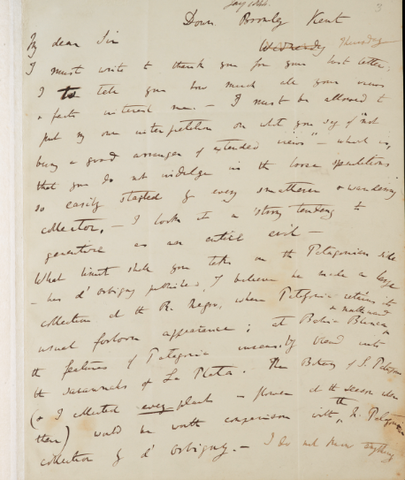 Jany 1844.
3
Down Bromley Kent
My dear Sir
Wednesday Thursday
I must write to thank you for your last letter;
I to tell you how much all your views
& facts interest me. — I must be allowed to
put my own interpretation on what you say of "not
being a good arranger of extended views" — which is,
that you do not indulge in the loose speculations
so easily started by every smatterer & wandering
collector. — I look at a strong tendency to
generalize as an entire evil —
What limit shall you take on the Patagonian side
— has d'Orbigny published, I believe he made a large
collection at the R. Negro, where Patagonia retains its
usual forlorn appearance; at Bahia Blanca & northward
the features of Patagonia insensibly blend into
the savannahs of La Plata. — The Botany of S. Patagonia
(& I collected every plant in flower at the season when
there) would be worth comparison with the N. Patagonian
collection by d'Orbigny. — I do not know anything